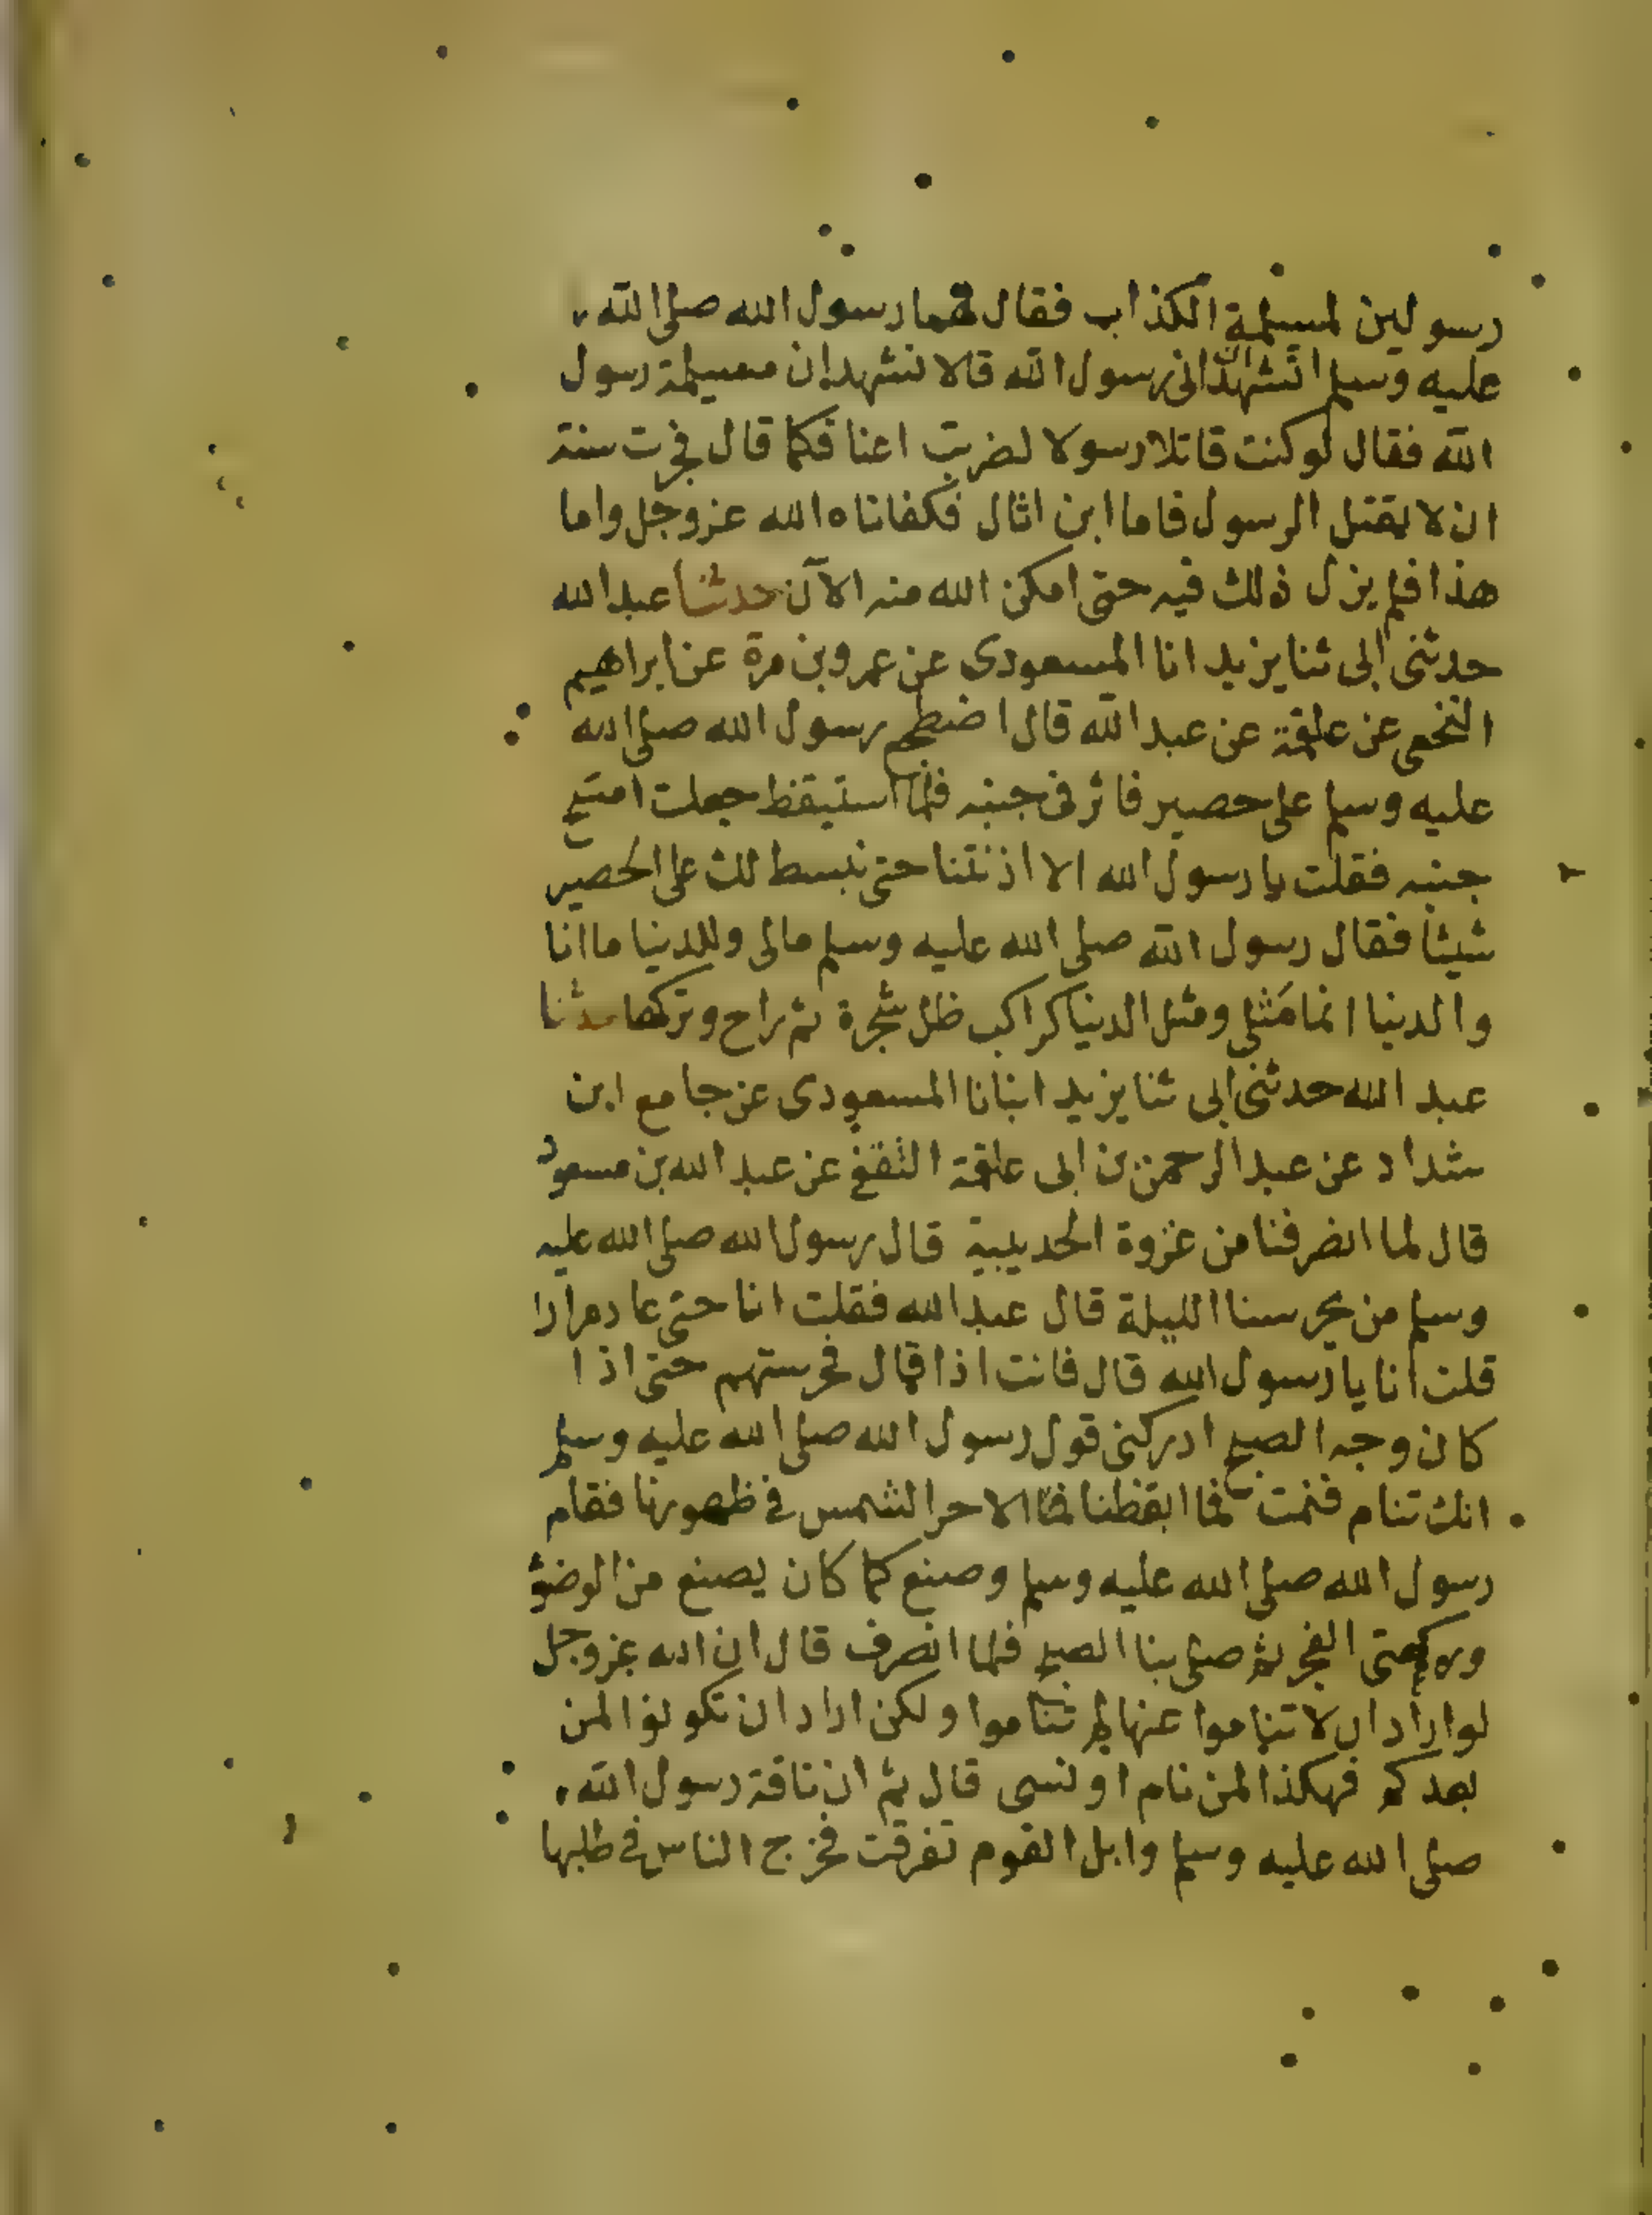 رسولين لمسيلمة الكذاب فقال لهما رسول الله صلى الله
عليه وسلم اتشهدان انى رسول الله قالا نشهد ان مسيلمة رسول
الله فقال لو كنت قاتلا رسولا لضربت اعناقكما قال فجرت سنة
ان لا يقتل الرسول فاما ابن اثال فكفاناه الله عز وجل واما
هذا فلم يزل ذلك فيه حتى امكن الله منه الآن حدثنا عبد الله
حدثنى ابى ثنا يزيد انا المسعودى عن عمرو بن مرة عن ابراهيم
النخعى عن علقمة عن عبد الله قال اضطجع رسول الله صلى الله
عليه وسلم على حصير فاثر فى جنبه فلما استيقظ جعلت امسح
جنبه فقلت يا رسول الله الا اذنتنا حتى نبسط لك على الحصير
شيئا فقال رسول الله صلى الله عليه وسلم مالى وللدنيا ما انا
والدنيا انما مَثلى ومثل الدنيا كراكب ظل شجرة ثم راح وتركها حدثنا
عبد الله حدثنى ابى ثنا يزيد انبانا المسعودى عن جامع ابن
شداد عن عبد الرحمن بن ابى علقمة الثقفى عن عبد الله بن مسعود
قال لما انصرفنا من غزوة الحديبية قال رسول الله صلى الله عليه
وسلم من يحرسنا الليلة قال عبد الله فقلت انا حتى عاد مرارا
قلت انا يا رسول الله قال فانت اذا قال فحرستهم حتى اذا
كان وجه الصبح ادركنى قول رسول الله صلى الله عليه وسلم
انك تنام فنمت فما ايقظنا الا حر الشمس فى ظهورنا فقام
رسول الله صلى الله عليه وسلم وصنع كما كان يصنع من الوضؤ
وركعتى الفجر ثم صلى بنا الصبح فلما انصرف قال ان الله عز وجل
لو اراد ان لا تناموا عنها لم تناموا ولكن اراد ان تكونوا لمن
بعدكم فهكذا لمن نام او نسى قال ثم ان ناقة رسول الله
صلى الله عليه وسلم وابل القوم تفرقت فخرج الناس فى طلبها